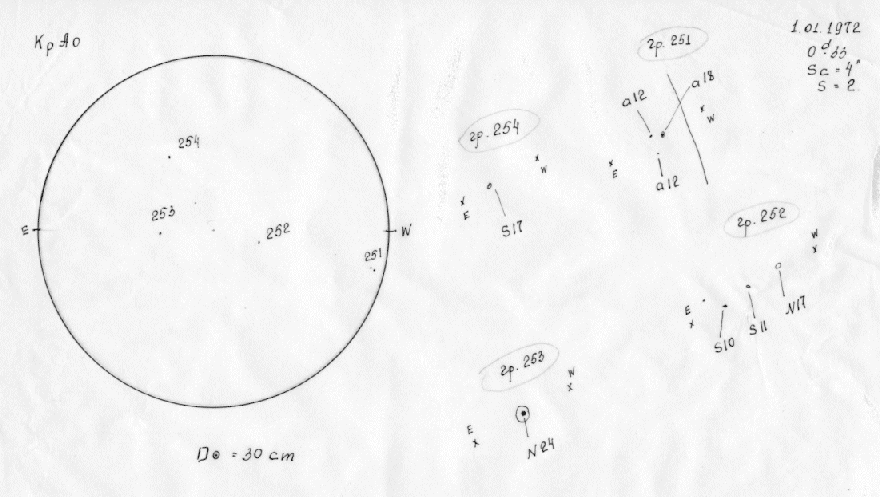 КрАО
1.01.1972
0ᵈ.33
Sc = 4"
S = 2
гр. 251
a12
a18
W
E
a12
гр. 254
W
E
S17
254
253
252
251
E
W
гр. 252
W
E
S10
S11
N17
гр. 253
W
E
N24
D⊙ = 30 cm